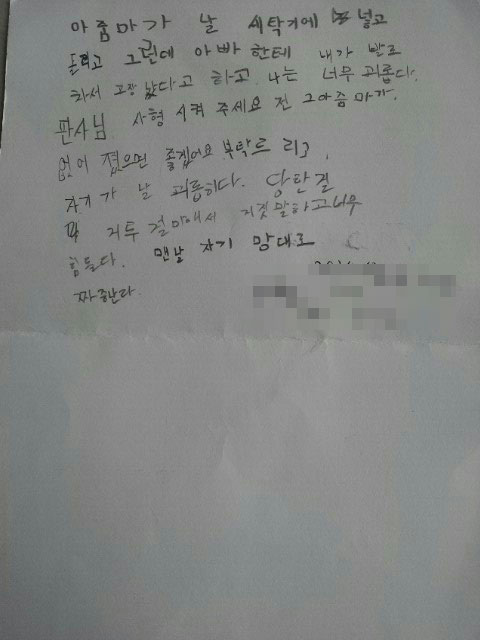 아줌마가 날 세탁기에 넣고
돌리고 그런데 아빠 한테 내가 발로
차서 고장 났다고 하고. 나는 너무 괴롭다.
판사님 사형 시켜 주세요 전 그아줌마가.
없어 졌으면 좋겠어요 부탁드리고,
자기가 날 괴롭히다. 당한걸
다 거투 걸마에서 거짓말하고 너무
힘들다. 맨날 자기 맘대로
짜증난다